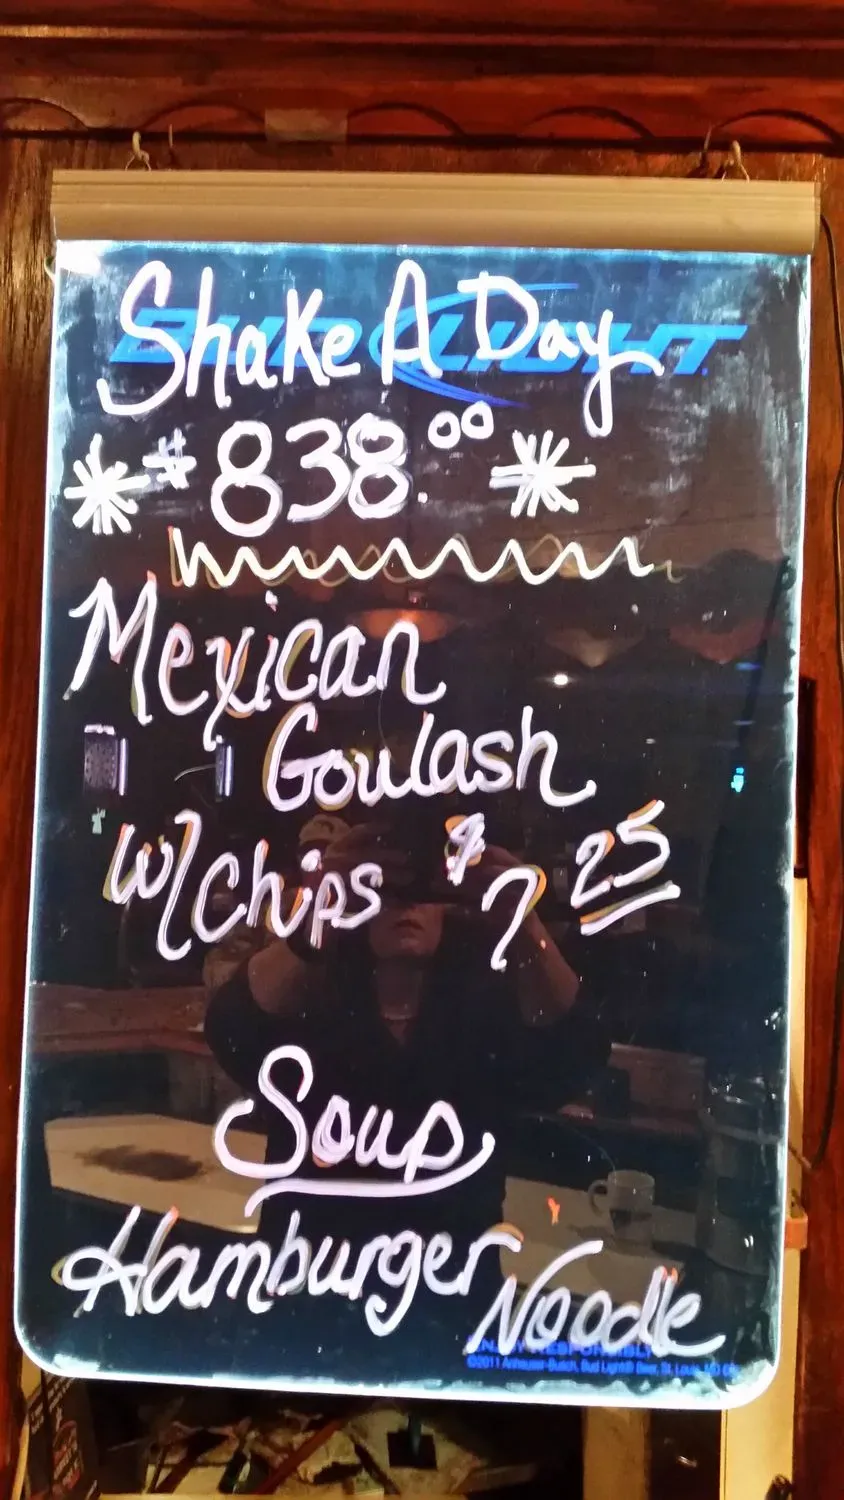 BUD LIGHT
Shake A Day
$838.00
Mexican
Goulash
w/chips $7 25
Soup
Hamburger
Noodle
ENJOY RESPONSIBLY
©2011 Anheuser-Busch, Bud Light® Beer, St. Louis, MO